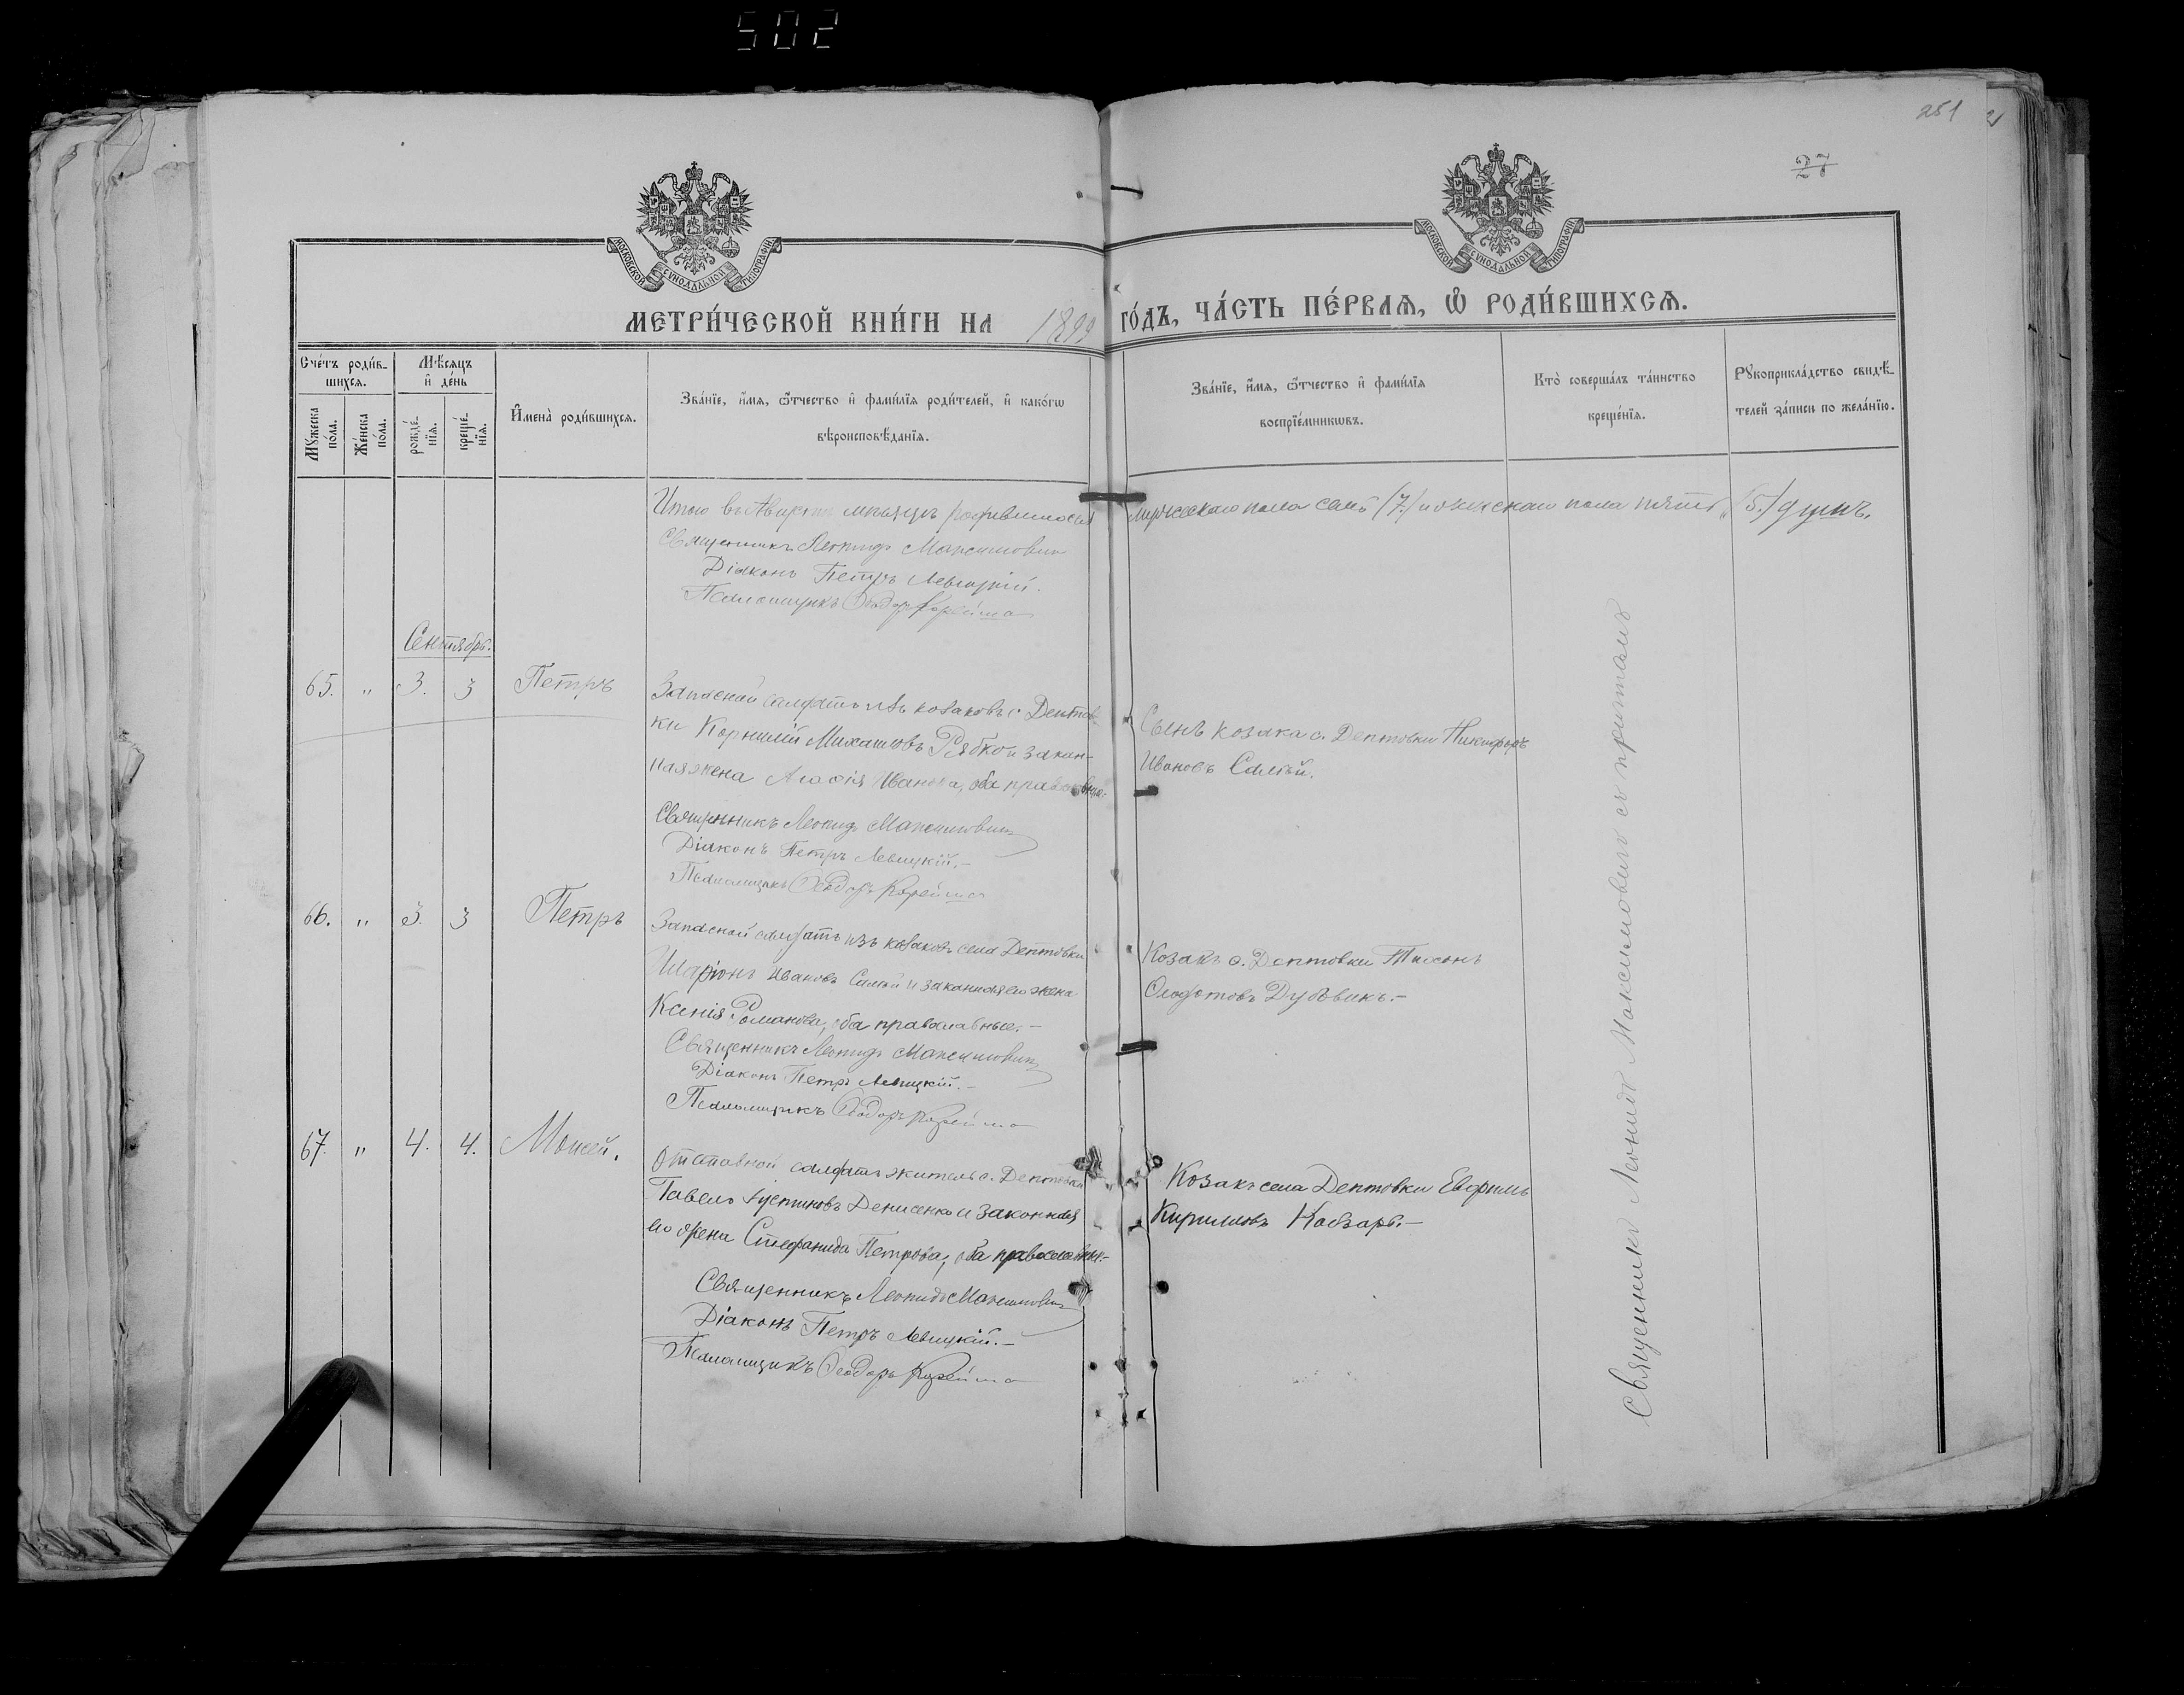 502
251
27
28
МОСКОВСКОЙ СУНОДАЛЬНОЙ ТИПОГРАФІИ
МОСКОВСКОЙ СУНОДАЛЬНОЙ ТИПОГРАФІИ
МЕТРИ́ЧЕСКОЙ КНИ́ГИ НА 1899 ГО́ДЪ, ЧА́СТЬ ПЕ́РВАЯ, Ѽ РОДИ́ВШИХСЯ.
Сче́тъ роди́в-
шихся.
Мѣ́сяцъ
и҆ де́нь
Мꙋ́жеска
по́ла.
Же́нска
по́ла.
рожде́-
нїѧ.
креще́-
нїѧ.
И҆мена̀ роди́вшихся.
Зва́нїе, и҆́мя, ѻ҆́тчество и҆ фами́лїя роди́телей, и҆ како́гѡ
вѣроисповѣ́данїя.
Зва́нїе, и҆́мя, ѻ҆́тчество и҆ фами́лїя
воспрїе́мникѡвъ.
Кто̀ соверша́лъ та́инство
креще́нїя.
Рꙋкоприкла́дство свидѣ́-
телей за́писи по жела́нїю.
Итого въ Августѣ мѣсяцѣ родившихся мужескаго пола семь (7.) и женскаго пола пять (5.) душъ.
Священникъ Леонидъ Максимовичъ
Діаконъ Петръ Левицкій.
Псаломщикъ Ѳеодоръ Корейша
Сентябрь.
65. " 3. 3 Петръ
Запасной солдатъ изъ козаковъ с. Дептов-
ки Корнилій Михаиловъ Рябко и закон-
ная жена Агафія Иванова, оба православные.
Священникъ Леонидъ Максимовичъ
Діаконъ Петръ Левицкій.—
Псаломщикъ Ѳеодоръ Корейша
Сынъ козака с. Дептовки Никифоръ
Ивановъ Самый.
66. " 3. 3 Петръ
Запасной солдатъ изъ козаковъ села Дептовки
Иларіонъ Ивановъ Самый и законная его жена
Ксенія Романова, оба православные.—
Священникъ Леонидъ Максимовичъ
Діаконъ Петръ Левицкій.—
Псаломщикъ Ѳеодоръ Корейша
Козакъ с. Дептовки Тихонъ
Дубовикъ.—
67. " 4. 4. Моисей.
Отставной солдатъ житель с. Дептовки
Павелъ Іустиновъ Денисенко и законная
его жена Стефанида Петрова, оба православные.—
Священникъ Леонидъ Максимовичъ
Діаконъ Петръ Левицкій.—
Псаломщикъ Ѳеодоръ Корейша
Козакъ села Дептовки Евфимъ
Кирилловъ Кобзарь.—
Священникъ Леонидъ Максимовичъ съ причтомъ